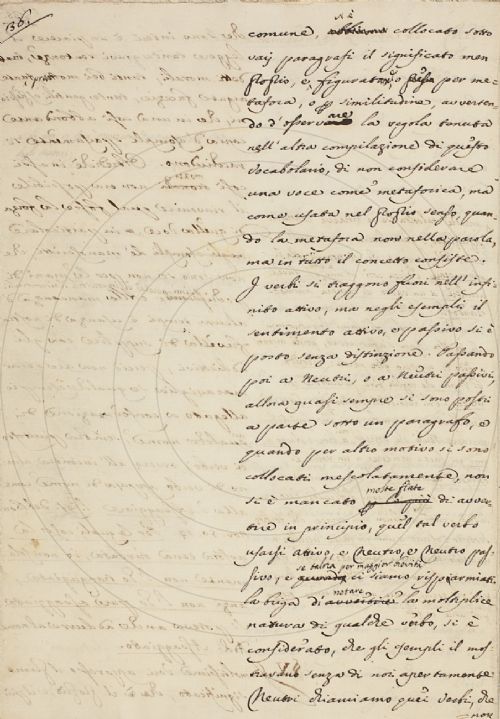 136.
comune, si è collocato sotto
varj paragrafi il significato men
proprio, e figurato, per me-
tafora, o similitudine, avverten-
do d'osservare la regola tenuta
nell'altra compilazione di questo
Vocabolario, di non considerare
una voce come metaforica, ma
come usata nel proprio senso, quan-
do la metafora non nella parola,
ma in tutto il concetto consiste.
I verbi si traggono fuori nell'infi-
nito attivo, ma negli esempli il
sentimento attivo, e passivo si è
posto senza distinzione. Passando
poi a Neutri, o a Neutri passivi,
allora quasi sempre si sono posti
a parte sotto un paragrafo, e
quando per altro motivo si sono
collocati mescolatamente, non
molte fiate
si è mancato di avver-
tire in principio, quel tal verbo
usarsi attivo, e Neutro, e Neutro pas-
se talora per maggior brevità
sivo, e ci siamo risparmiati
notare
la briga di la moltiplice
natura di qualche verbo, si è
considerato, che gli esempli il mos-
travano senza di noi apertamente
Neutri chiamiamo quei verbi, che
non